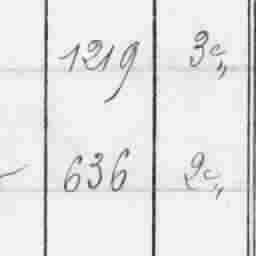 1219 3c„
636 2c„